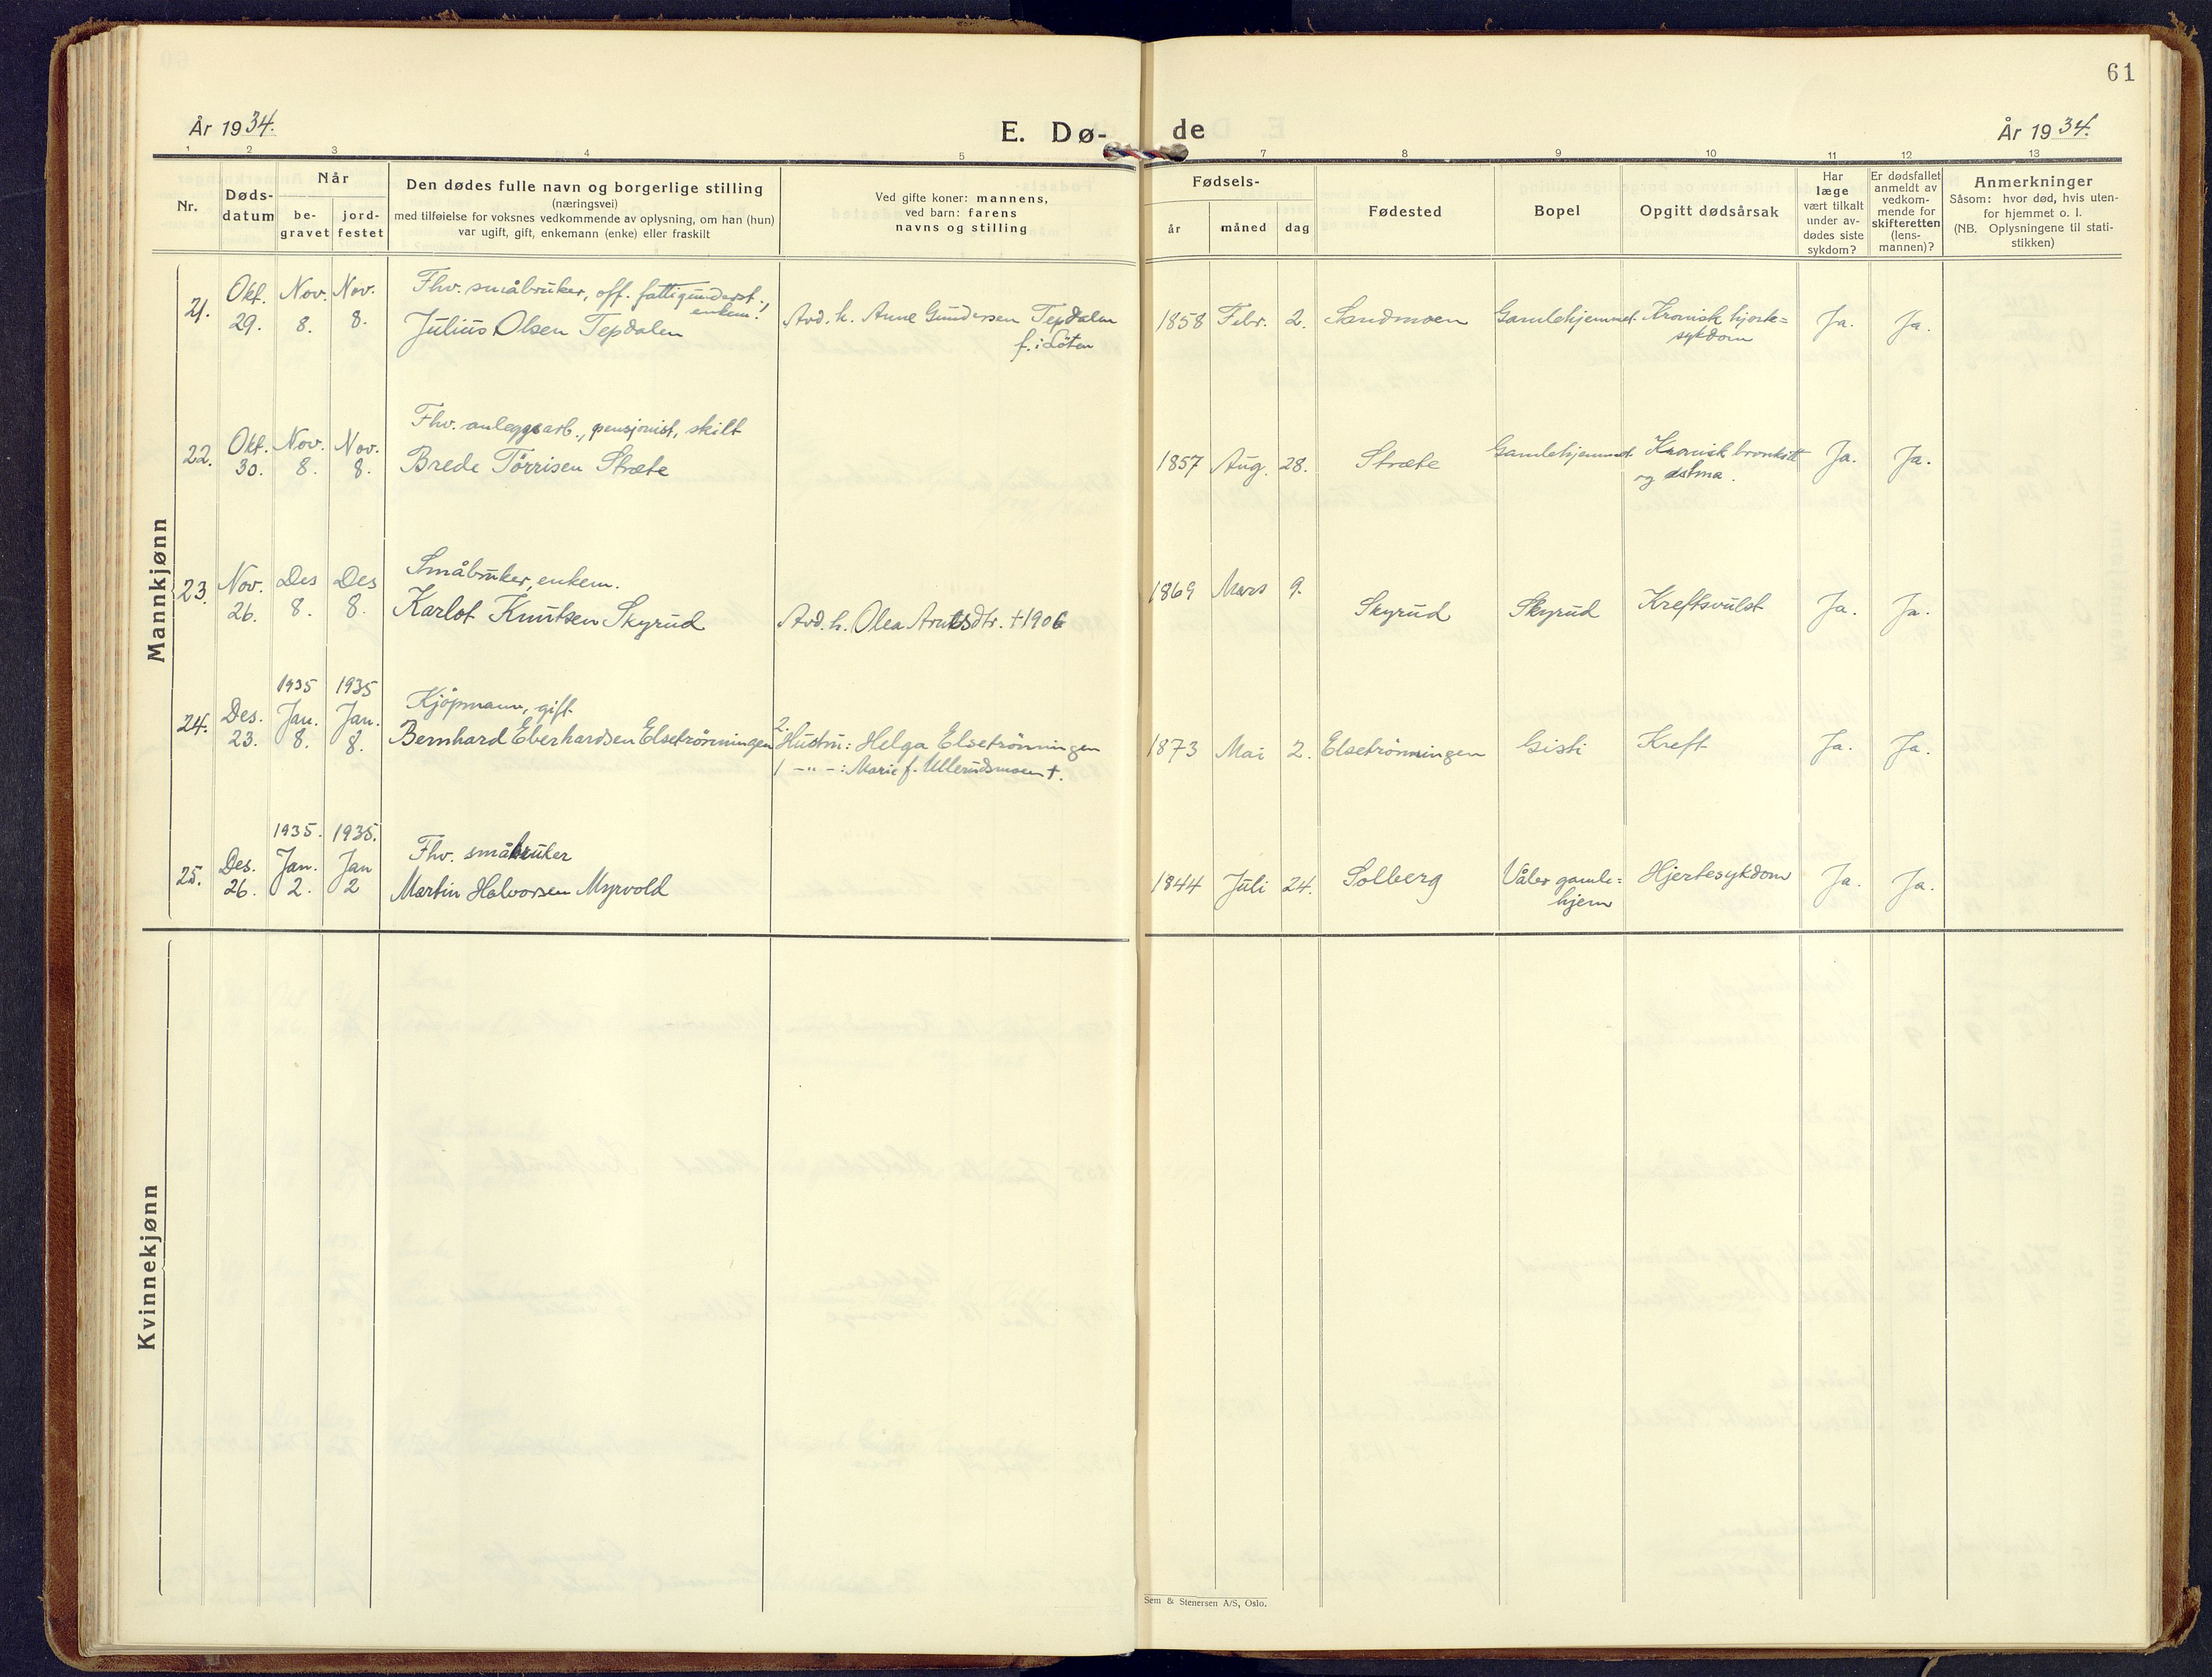 61
År 1934.
E. Dø-
de
År 1934.
1 2 3 4 5 7 8 9 10 11 12 13
Nr.
Døds-
datum
Når
be-
gravet
jord-
festet
Den dødes fulle navn og borgerlige stilling
(næringsvei)
med tilføielse for voksnes vedkommende av oplysning, om han (hun)
var ugift, gift, enkemann (enke) eller fraskilt
Ved gifte koner: mannens,
ved barn: farens
navns og stilling
Fødsels-
år
måned
dag
Fødested
Bopel
Opgitt dødsårsak
Har
læge
vært tilkalt
under av-
dødes siste
sykdom?
Er dødsfallet
anmeldt av
vedkom-
mende for
skifteretten
(lens-
mannen)?
Anmerkninger
Såsom: hvor død, hvis uten-
for hjemmet o. l.
(NB. Oplysningene til stati-
stikken)
Mannkjønn
21.
Okt.
29.
Nov.
8.
Nov.
8.
Fhv. småbruker, off. fattigunderst.,
enkem.
Julius Olsen Tepdalen
Avd. h. Anne Gundersen Tepdalen
f. i Löten
1858 Febr. 2.
Sandmoen
Gamlehjemmet
Kronisk hjerte=
sykdom
Ja.
Ja.
22.
Okt.
30.
Nov.
8.
Nov.
8.
Fhv. anleggsarb., pensjonist, skilt
Brede Törrisen Stræte
1857 Aug. 28.
Stræte
Gamlehjemmet
Kronisk bronkitt
og astma.
Ja.
Ja.
23.
Nov.
26.
Des
8.
Des
8.
Småbruker, enkem.
Karlot Knutsen Skyrud
Avd. h. Olea Arntsdtr. † 1906
1869 Mars 9.
Skyrud
Skyrud
Kreftsvulst
Ja.
Ja.
24.
Des.
23.
1935
Jan.
8.
1935
Jan.
8.
Kjöpmann, gift
Bernhard Eberhardsen Elsetrönningen
2. Hustru: Helga Elsetrönningen
1 -"- : Marie f. Ullerudsmoen †.
1873 Mai 2.
Elsetrönningen
Gisti
Kreft
Ja.
Ja.
25.
Des.
26.
1935.
Jan.
2.
1935.
Jan
2
Fhv. småbruker
Martin Halvorsen Myrvold
1844 Juli 24.
Solberg
Våler gamle=
hjem
Hjertesykdom
Ja.
Ja.
Kvinnekjønn
Sem & Stenersen A/S, Oslo.